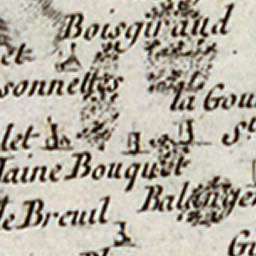 Boisgiraud
et
sonnettes
la Gou
let
St
Maine Bouquet
Balanger
le Breuil